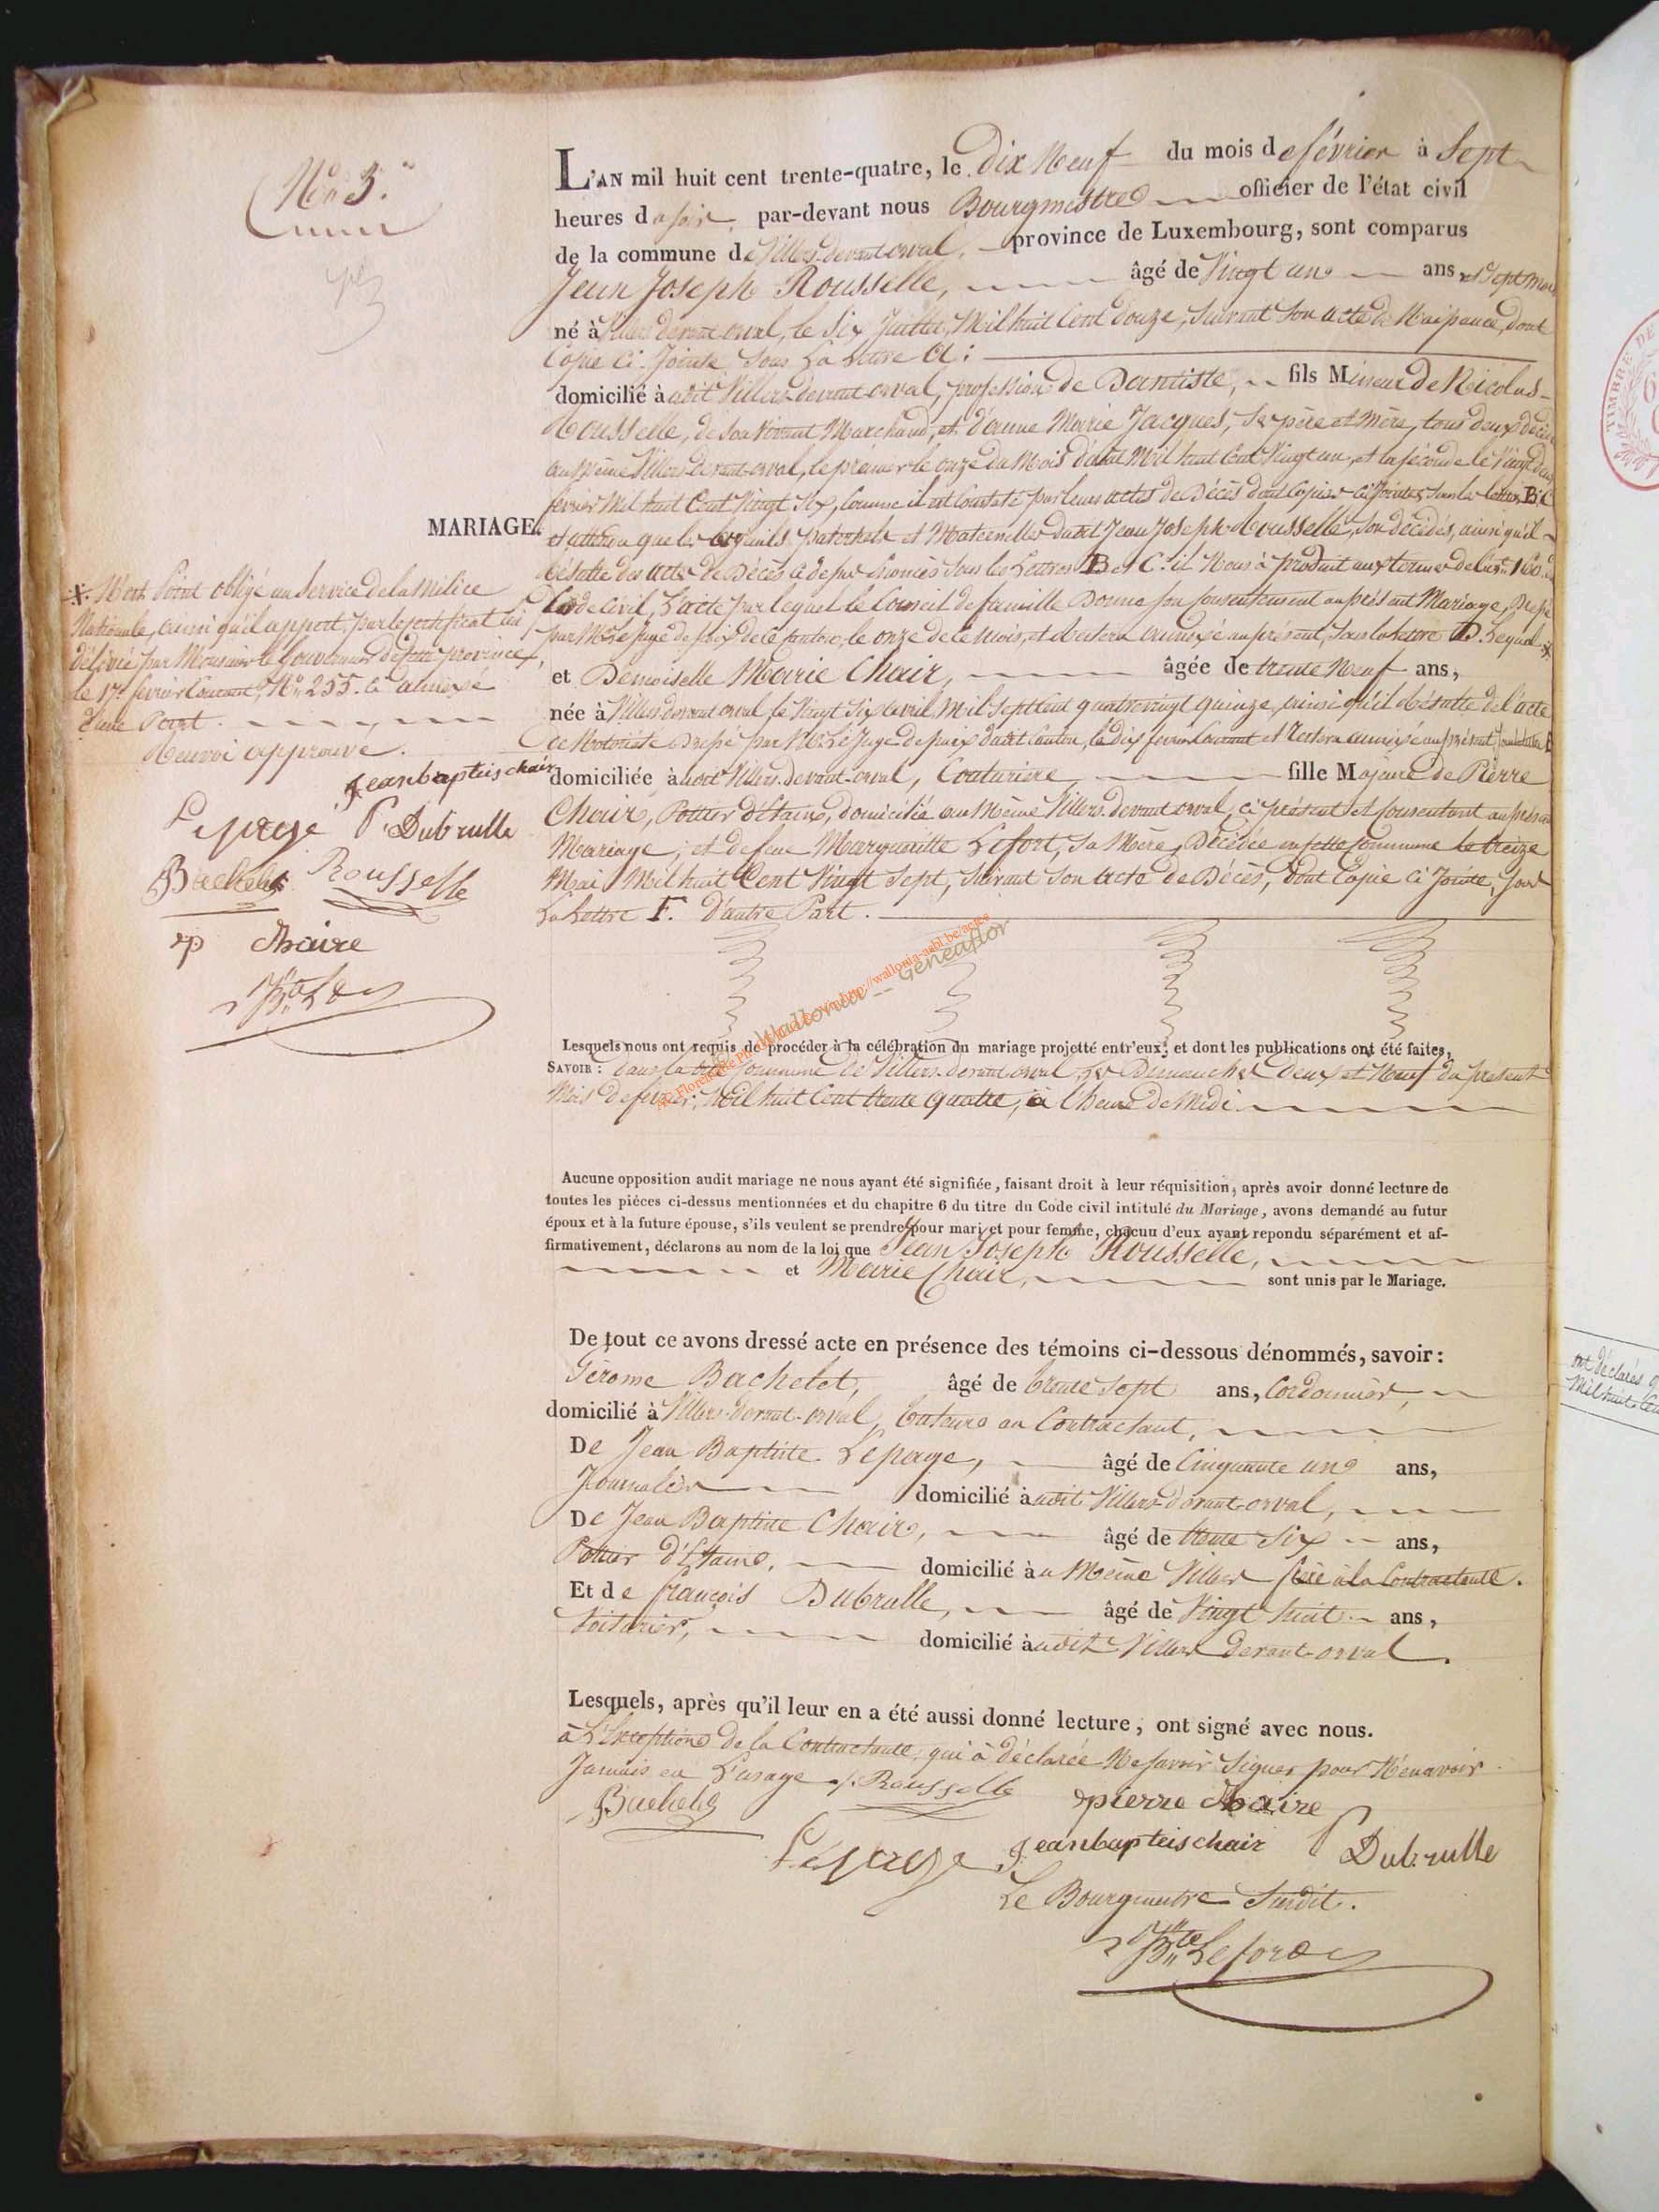 N.° 3.
L'AN mil huit cent trente-quatre, le Dix Neuf du mois de février à Sept
heures du soir, par-devant nous Bourgmestre officier de l'état civil
de la commune de Villers-devant-orval, province de Luxembourg, sont comparus
Jean Joseph Rousselle, âgé de Vingt un ans et Sept mois
né à Villers devant orval, le Six Juillet Mil huit Cent douze, Suivant Son acte de Naissance, dont
Copie Ci-Jointe Sous La Lettre A:
domicilié à udit Villers-devant-orval, profession de fils Mineur de Nicolas
Rousselle, de Son Vivant Marchand, et d'anne Marie Jacques, Ses père et Mère, tous deux décédés
au Même Villers devant-orval, le premier le onze du Mois d'août Mil huit Cent Vingt un, et la Seconde le Vingt deux
février Mil huit Cent Vingt Six, Comme il est Constaté par leurs actes de Décès dont Copies Ci Jointes Sous les lettres B. C
et attendu que les ayeuls paternels et Maternelles dudit Jean Joseph Rousselle, Son décédés, ainsi qu'il
Résulte des actes de Décès Ci dessus énoncés Sous les Lettres B et C. il Nous à produit aux termes de l'art. 160. du
Code Civil, L'acte par lequel le Conseil de famille Donne Son Consentement au présent Mariage, Dressé
par Mr. le Juge de paix de Ce Canton, le onze de Ce Mois, et Restera annexé au présent, Sous la lettre D. Lequel X
MARIAGE.
X. N'est Point obligé au Service de la Milice
Nationale, ainsi qu'il appert par le Certificat lui
délivré par Monsieur le Gouverneur de Cette province,
le 17 février Courant, N.° 255. Ci annexé
d'une Part.
Renvoi approuvé.
Jeanbapteis chair
Lepage f Dubrulle
Bachelet Rousselle
p chaire
et Demoiselle Marie Chair, âgée de trente Neuf ans,
née à Villers devant orval le Vingt Six avril Mil Sept Cent quatrevingt quinze, ainsi qu'il Résulte de l'acte
de Notoriété Dressé par Mr. Le Juge de paix dudit Canton, le Dix février Courant et Restera annexé au présent, Sous la lettre E
domiciliée à udit Villers-devant-orval, Couturiere fille Majeure de Pierre
Chair, Potier d'étain, domicilié au Même Villers devant orval, Ci présent et Consentant au présent
Mariage; et de feue Margueritte Lefort, Sa Mère, Décédée en Cette Commune le treize
Mai Mil huit Cent Vingt Sept, Suivant Son acte de Décès, dont Copie Ci Jointe, Sous
La Lettre F. d'autre Part.
Wallonia - Geneaflor
Lesquels nous ont requis de procéder à la célébration du mariage projetté entr'eux, et dont les publications ont été faites,
SAVOIR: Dans la Commune de Villers-devant orval, les Dimanches Deux et Neuf du présent
Mois de février, Mil huit Cent trente quatre, à l'heure de Midi
Aucune opposition audit mariage ne nous ayant été signifiée, faisant droit à leur réquisition, après avoir donné lecture de
toutes les pièces ci-dessus mentionnées et du chapitre 6 du titre du Code civil intitulé du Mariage, avons demandé au futur
époux et à la future épouse, s'ils veulent se prendre pour mari et pour femme, chacun d'eux ayant repondu séparément et af-
firmativement, déclarons au nom de la loi que Jean Joseph Rousselle,
et Marie Chair, sont unis par le Mariage.
De tout ce avons dressé acte en présence des témoins ci-dessous dénommés, savoir:
Gérome Bachelet, âgé de trente sept ans, Cordonnier,
domicilié à Villers-devant-orval, au Contractant,
De Jean Baptiste Lepage, âgé de Cinquante un ans,
Journalier domicilié à udit Villers-devant-orval,
De Jean Baptiste Chair, âgé de trente Six ans,
Potier d'Etain, domicilié à u Même Villers frère à la Contractante.
Et de françois Dubrulle, âgé de Vingt huit ans,
Voiturier, domicilié à udit Villers devant-orval.
Lesquels, après qu'il leur en a été aussi donné lecture, ont signé avec nous.
à L'Exception de la Contractante, qui à déclarée Ne Savoir Signer pour N'en avoir
Jamais eu L'usage J. Rousselle
Bachelet pierre chaire
Lepage Jeanbapteis chair f Dubrulle
Le Bourgmestre Susdit.
TIMBRE DE
ont déclarés
Mil huit Cen